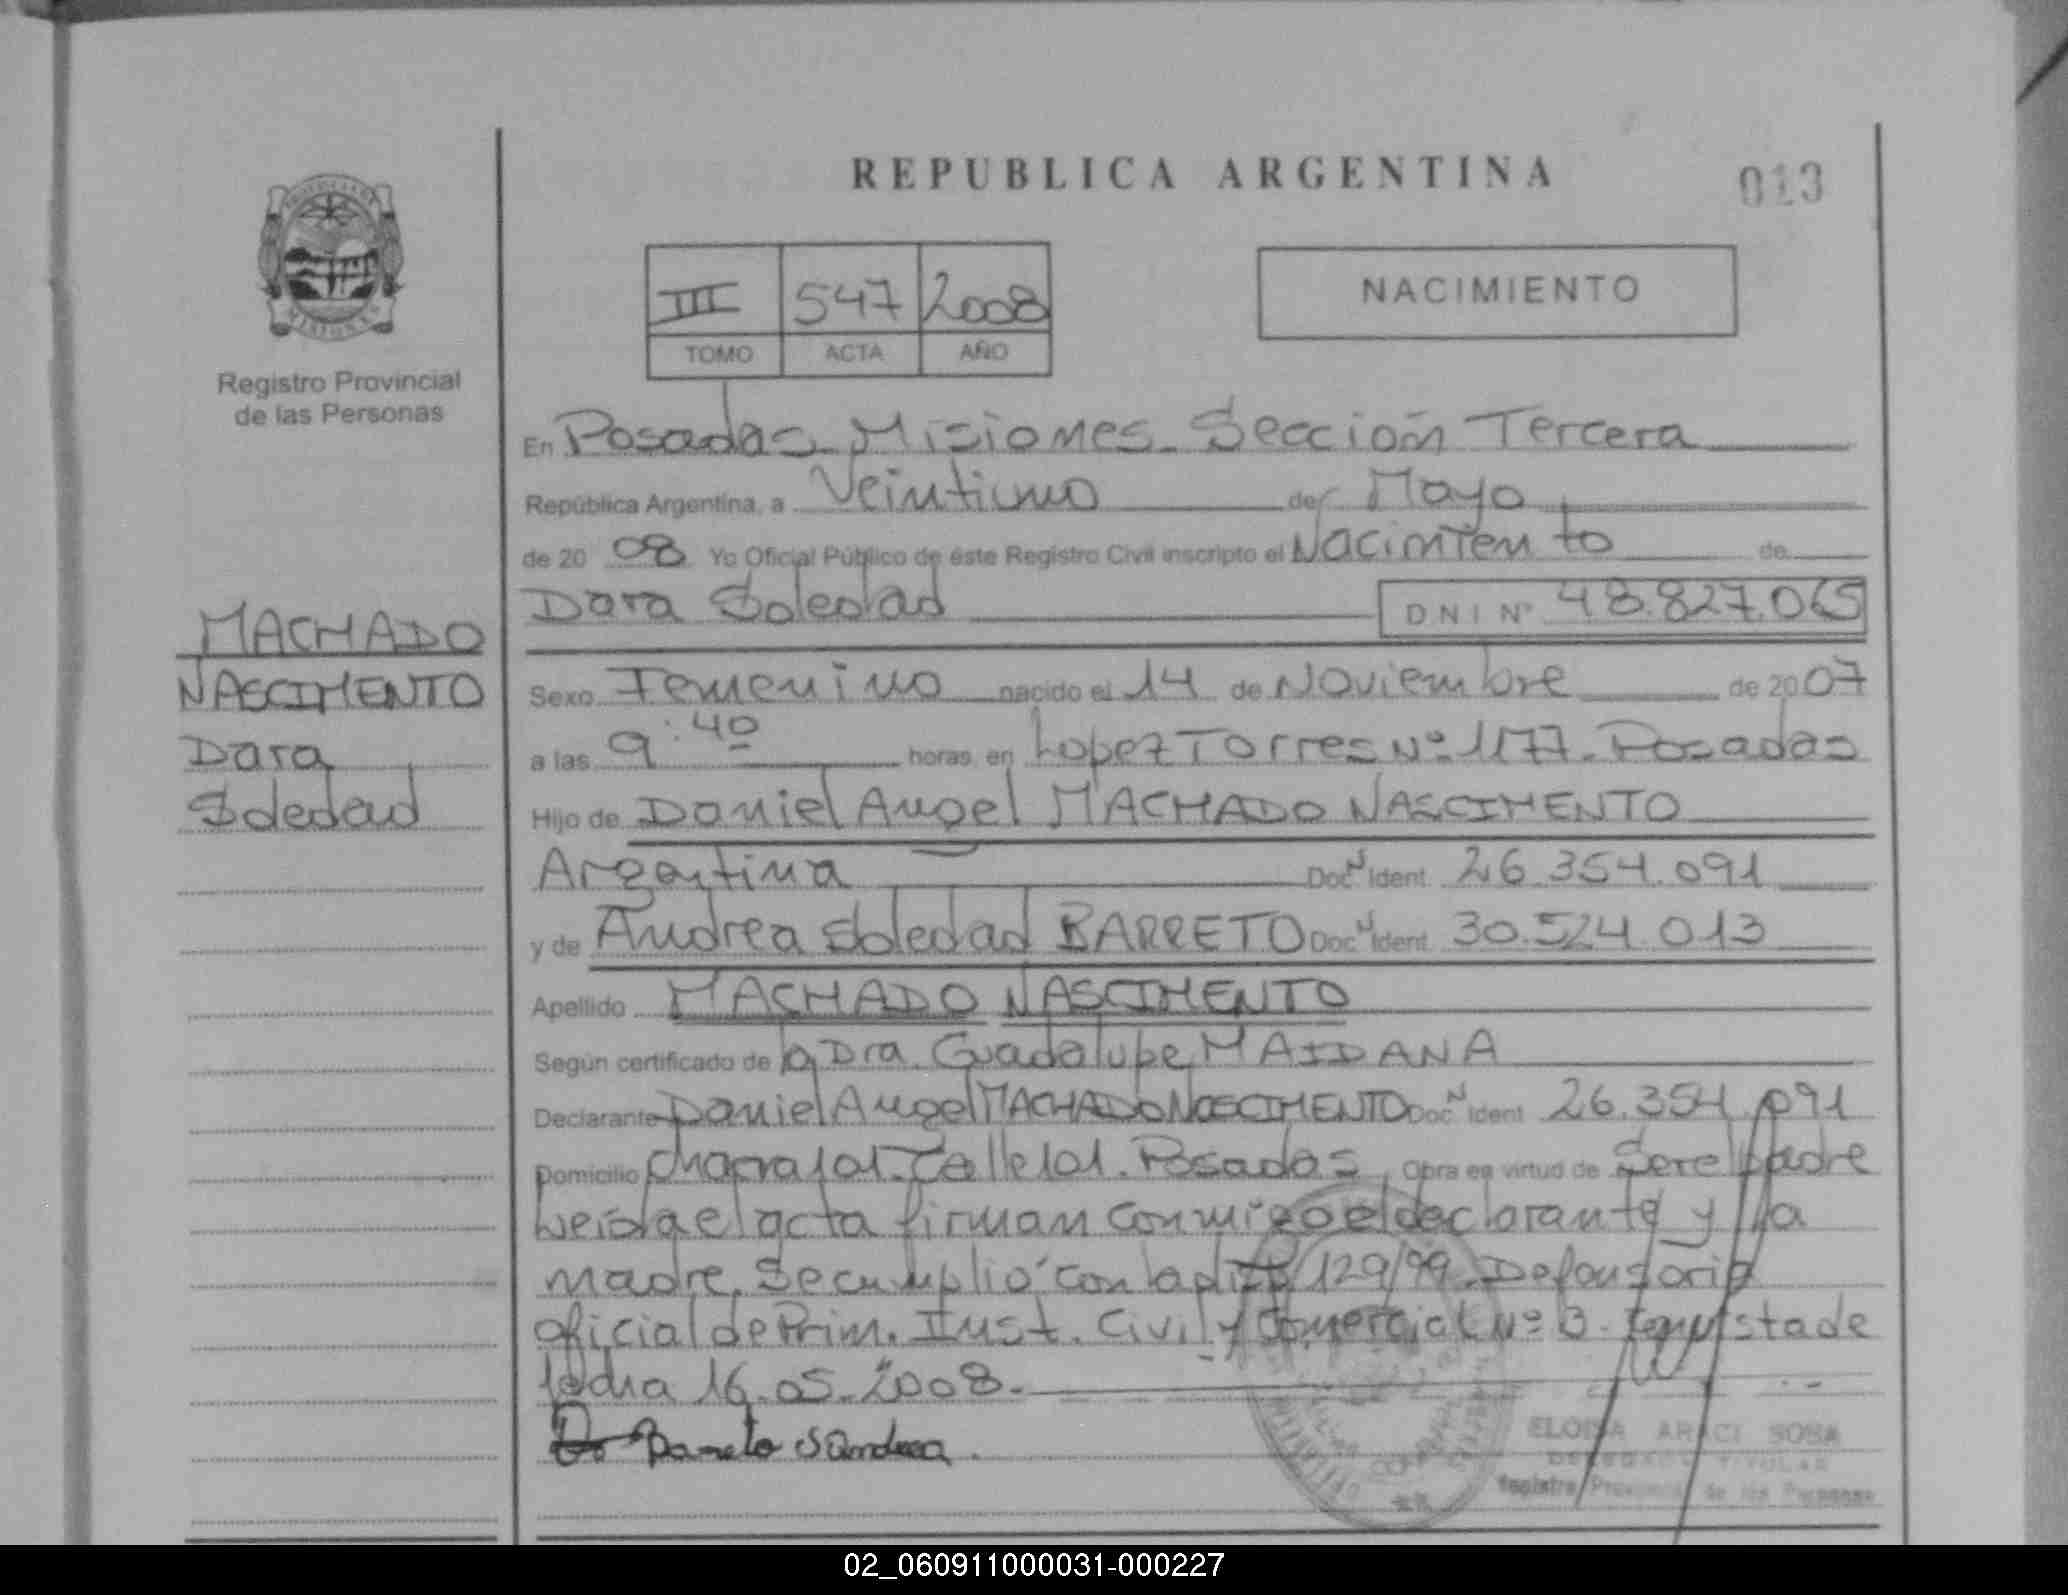 REPUBLICA ARGENTINA
013
III 547 2008
TOMO ACTA AÑO
NACIMIENTO
Registro Provincial
de las Personas
MACHADO
NASCIMENTO
Dara
Soledad
En Posadas Misiones Sección Tercera
República Argentina, a Veintiuno de Mayo
de 20 08 Yo Oficial Público de éste Registro Civil inscripto el Nacimiento de
Dara Soledad DNI Nº 48.827.065
Sexo Femenino nacido el 14 de Noviembre de 2007
a las 9:40 horas, en Lopez Torres Nº 1177. Posadas
Hijo de Daniel Angel MACHADO NASCIMENTO
Argentina Doc. Ident. 26.354.091
y de Andrea Soledad BARRETO Doc. Ident. 30.524.013
Apellido MACHADO NASCIMENTO
Según certificado de la Dra. Guadalupe MAIDANA
Declarante Daniel Angel MACHADO NASCIMENTO Doc. Ident. 26.354.091
Domicilio Chacra 101. Calle 101. Posadas, Obra en virtud de Ser el padre
leída el acta firman conmigo el declarante y la
madre. Se cumplió con la 129/99. Defensoria
oficial de Prim. Inst. Civil y Comercial Nº 3. de
16.05.2008.
ELOISA ARACI SOSA
DELEGADO TITULAR
Registro Provincial de las Personas
02_060911000031-000227